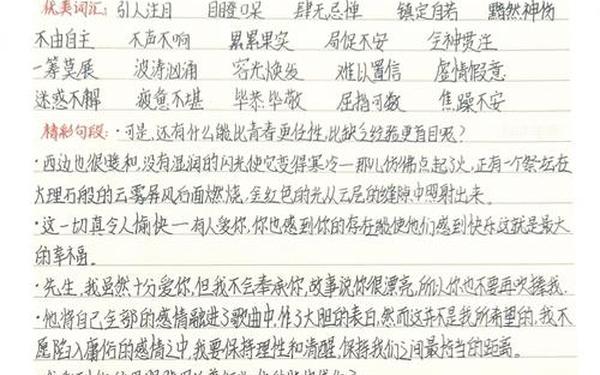 优美词汇: 引人注目 目瞪口呆 肆无忌惮 镇定自若 黯然神伤
不由自主 不声不响 累累果实 局促不安 全神贯注
一筹莫展 波涛汹涌 容光焕发 难以置信 虚情假意
迷惑不解 疲惫不堪 毕恭毕敬 屈指可数 焦躁不安
精彩句段: ·可是,还有什么能比青春更任性,比缺乏经验更盲目呢?
·西边也很暖和,没有湿润的闪光使它变得寒冷—那儿仿佛点起了火,正有一个祭坛在
大理石般的云雾屏风后面燃烧,金红色的光从云层的缝隙中照射出来。
·这一切真令人愉快—有人爱你,你也感到你的存在能使他们感到快乐这就是最大
的幸福。
·先生,我虽然十分爱你,但我不会奉承你,故事说你很漂亮,所以你也不要再吹捧我.
·他将自己全部的感情融进了歌曲中,作了大胆的表白,然而这并不是我所希望的,我不
愿陷入庸俗的感情之中,我要保持理性和清醒,保持我们之间最恰当的距离。